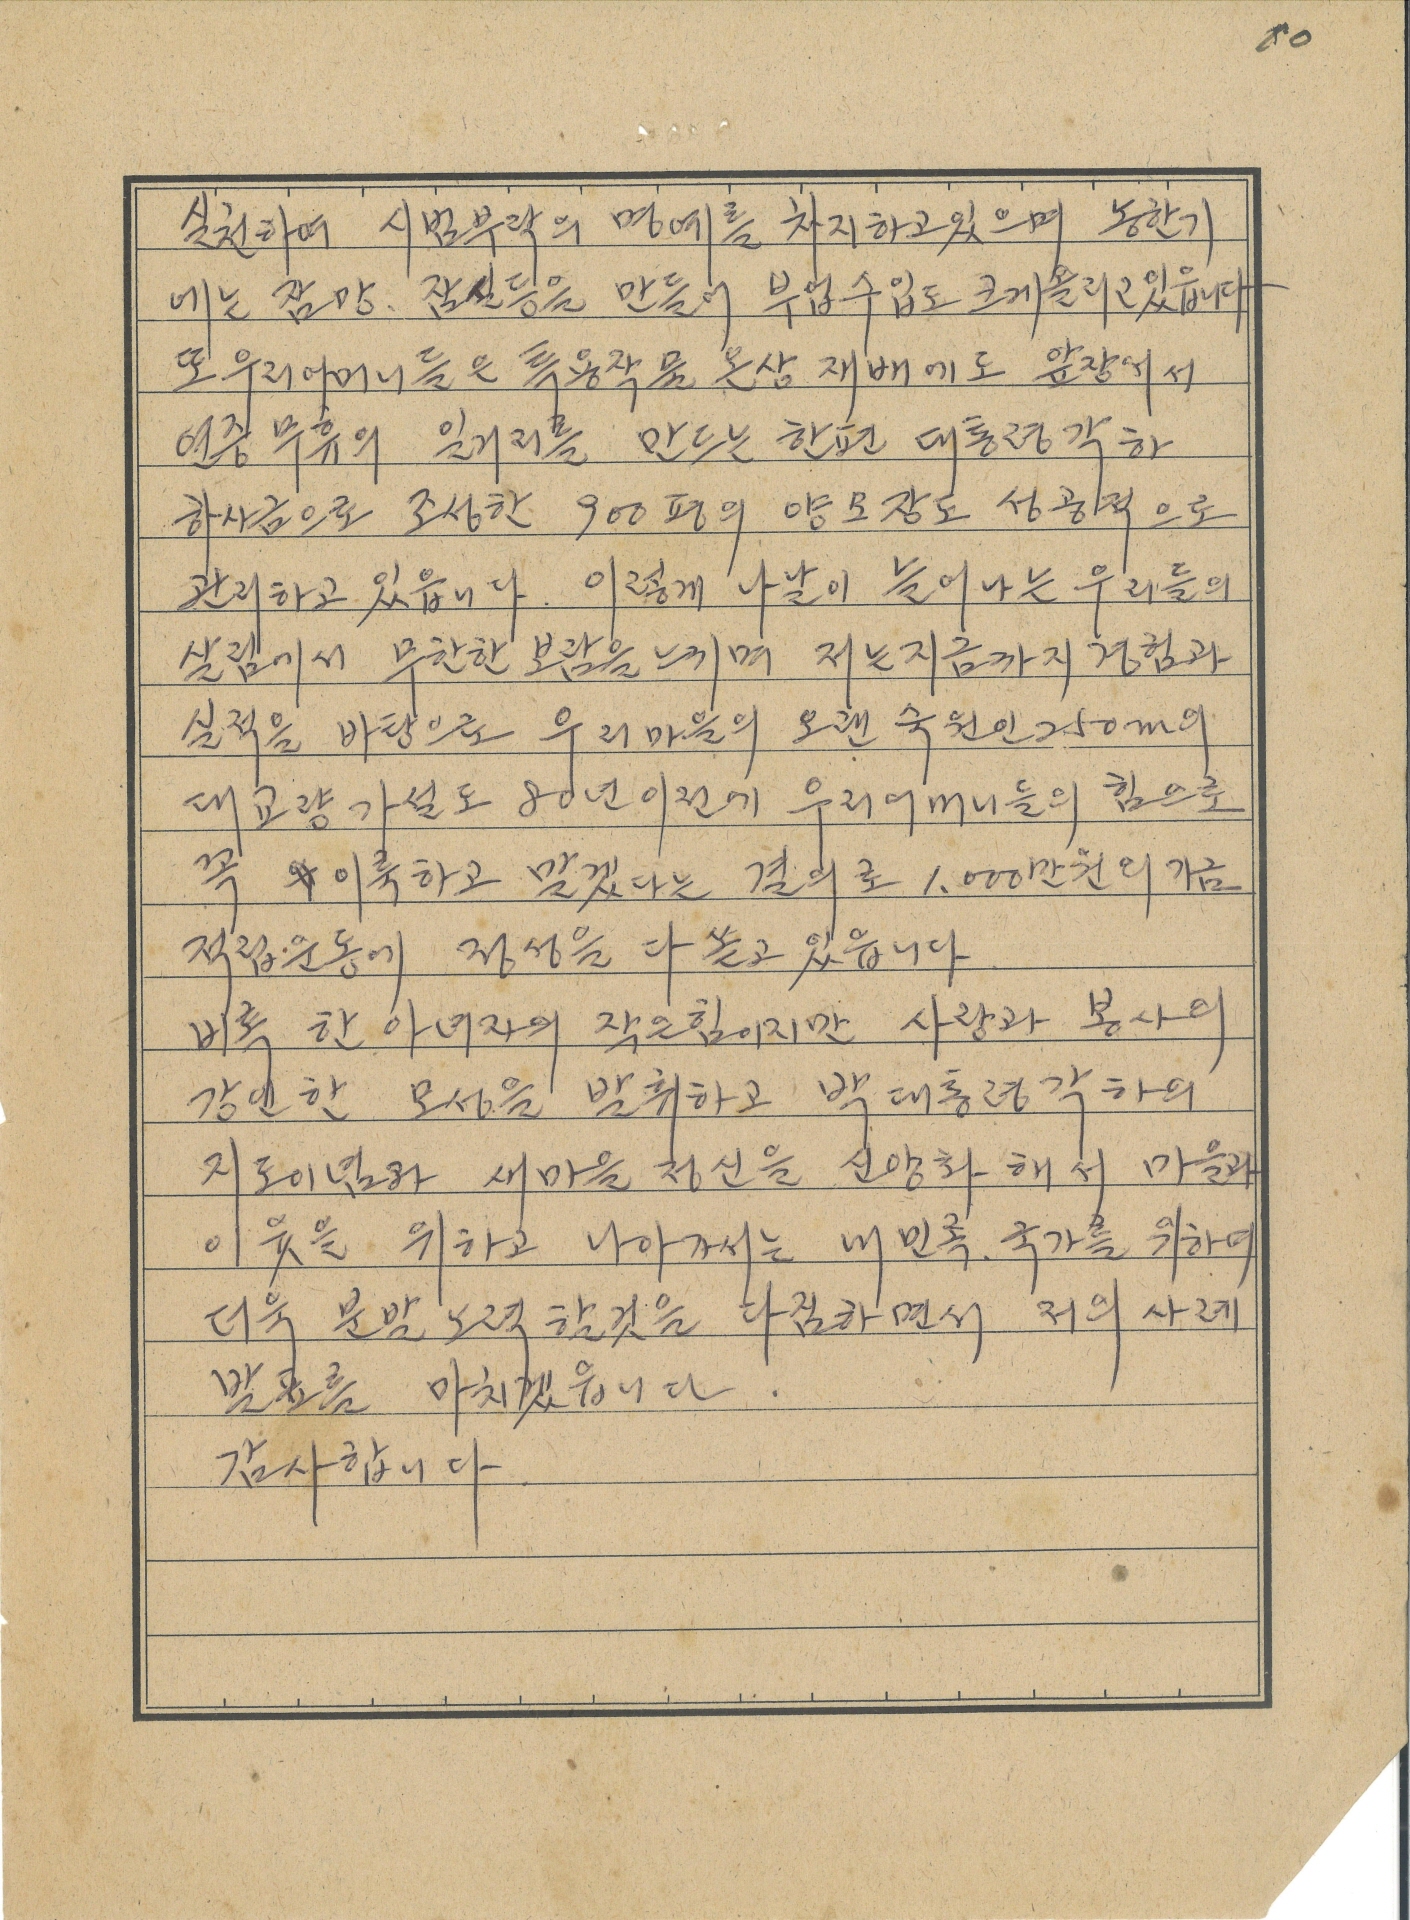 50
실천하여 시범부락의 명예를 차지하고있으며 농한기
에는 잠망. 잠실등을 만들어 부업수입도 크게올리고있읍니다
또 우리어머니들은 특용작물 온상 재배에도 앞장서서
연중 무휴의 일거리를 만드는 한편 대통령각하
하사금으로 조성한 900평의 양묘장도 성공적으로
관리하고 있읍니다. 이렇게 나날이 늘어나는 우리들의
살림에서 무한한 보람을 느끼며 저는지금까지 경험과
실적을 바탕으로 우리마을의 오랜 숙원인 250m의
대교량가설도 80년이전에 우리어머니들의 힘으로
꼭 이룩하고 말겠다는 결의로 1.000만원의 기금
적립운동에 정성을 다 쏟고 있읍니다
비록 한 아녀자의 작은힘이지만 사랑과 봉사의
강인한 모성을 발휘하고 박대통령각하의
지도이념과 새마을 정신을 신앙화 해서 마을과
이웃을 위하고 나아가서는 내 민족. 국가를 위하여
더욱 분발 노력할것을 다짐하면서 저의 사례
발표를 마치겠읍니다.
감사합니다.